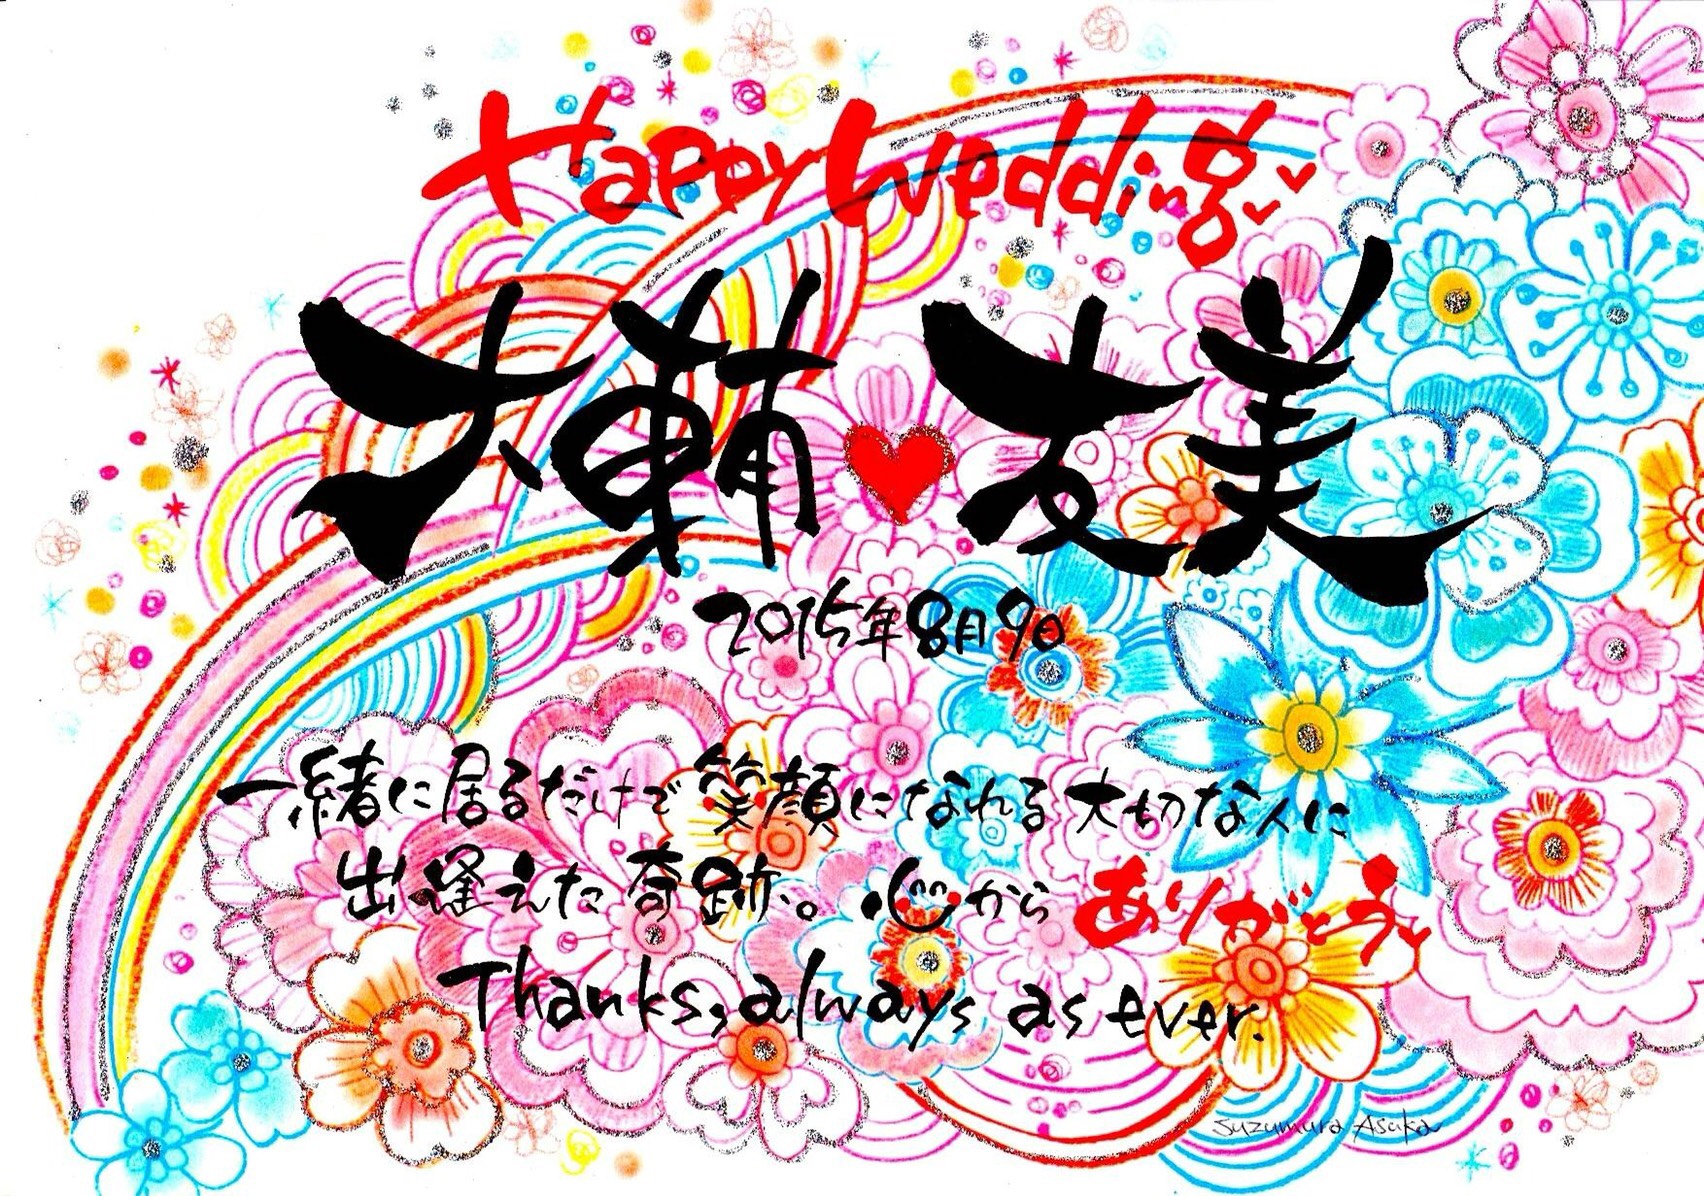 Happy Wedding
大輔♥友美
2015年8月9日
一緒に居るだけで笑顔になれる大切な人に
出逢えた奇跡。心からありがとう
Thanks, always as ever.
Suzumura Asuka